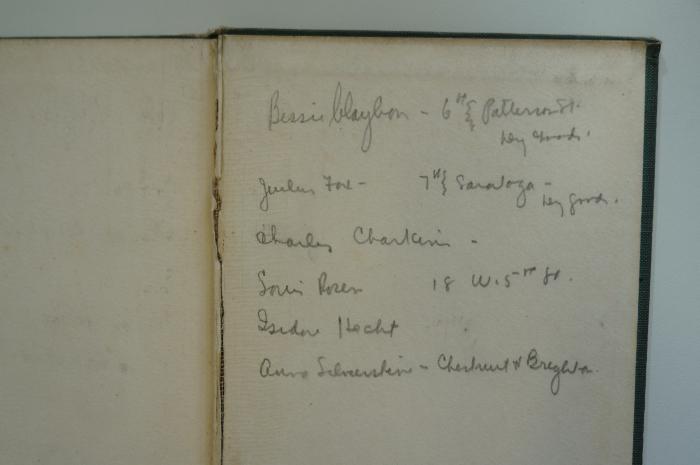 Bessie Claybon - 6th & Patterson St.
Dry Goods.
Julius Fox - 7th & Saratoga -
Dry goods.
Charley Charkins -
Louis Rosen 18 W. 5th St.
Isidore Hecht
Anna Silverstein - Chestnut & Brighton